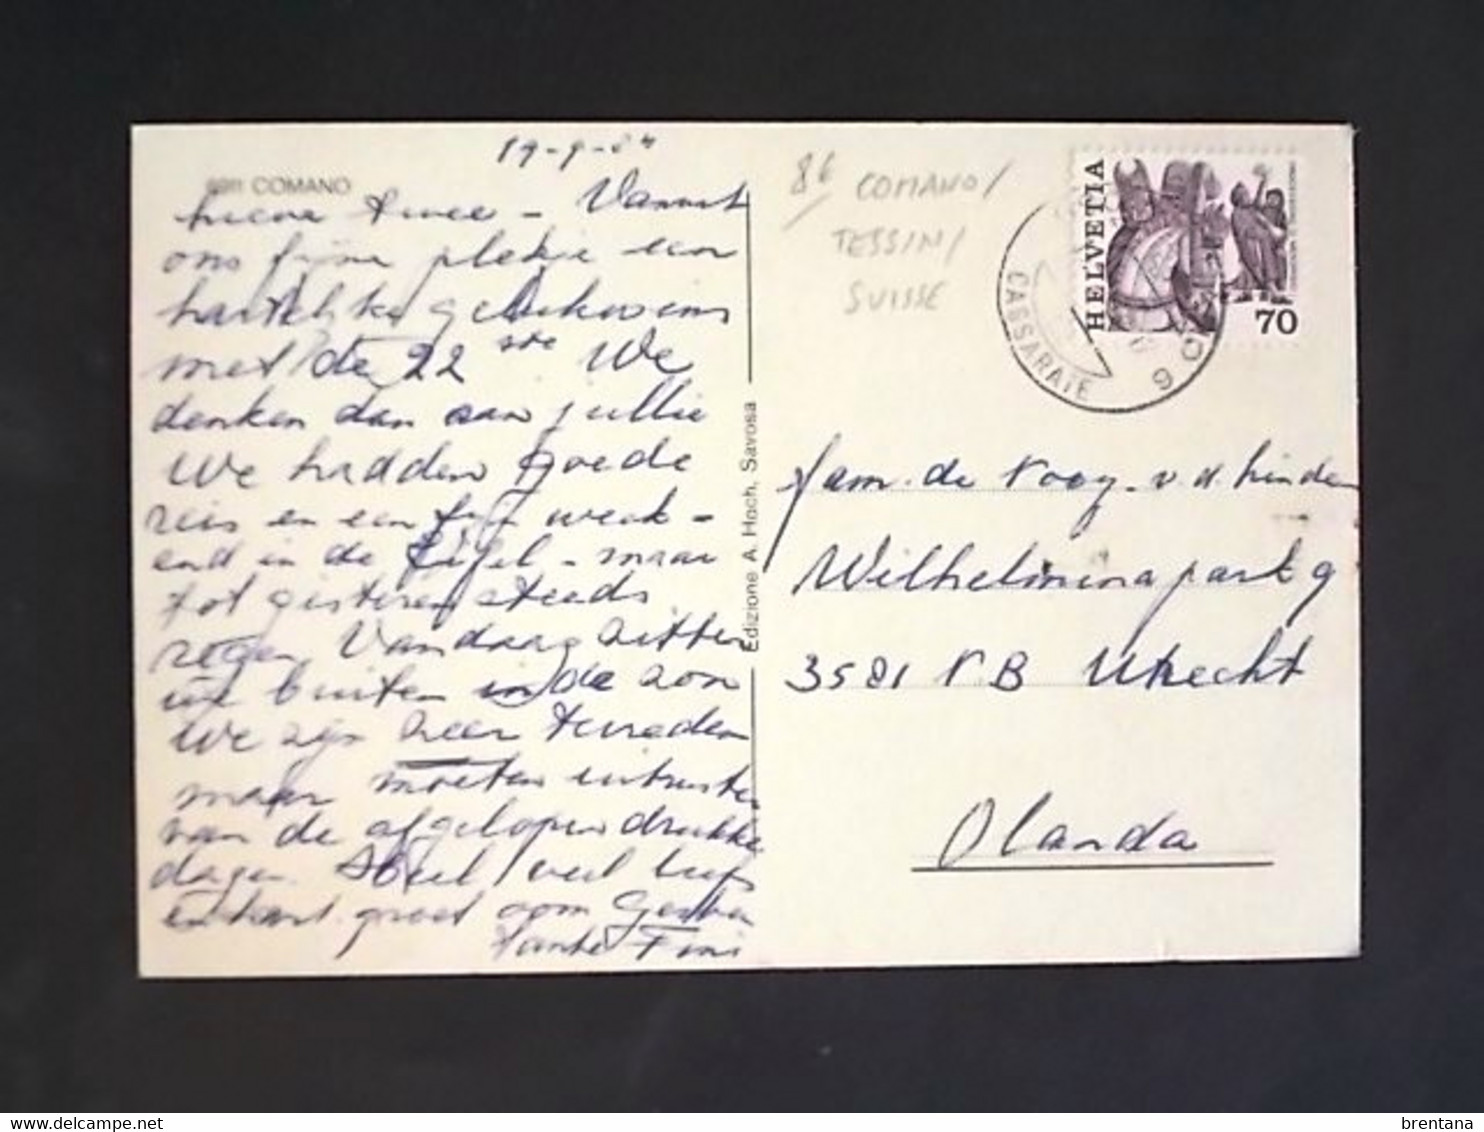 19-9-84
6911 COMANO
Lieve twee - Vanuit
ons fijne plekje een
hartelijke gelukwens
met de 22ste We
denken dan aan jullie
We hadden goede
reis en een fijn week-
end in de Eifel - maar
tot gisteren steeds
regen Vandaag zitten
we buiten in de zon
We zijn zeer tevreden
maar moeten uitrusten
van de afgelopen drukke
dagen. Heel veel liefs
en hart. groet oom
tante Fini
Edizione A. Hoch, Savosa
86 COMANO/
TESSIN/
SUISSE
CASSARATE
HELVETIA
70
fam. de Rooy - v. d. Linden
Wilhelminapark 9
3581 NB Utrecht
Olanda
brentana